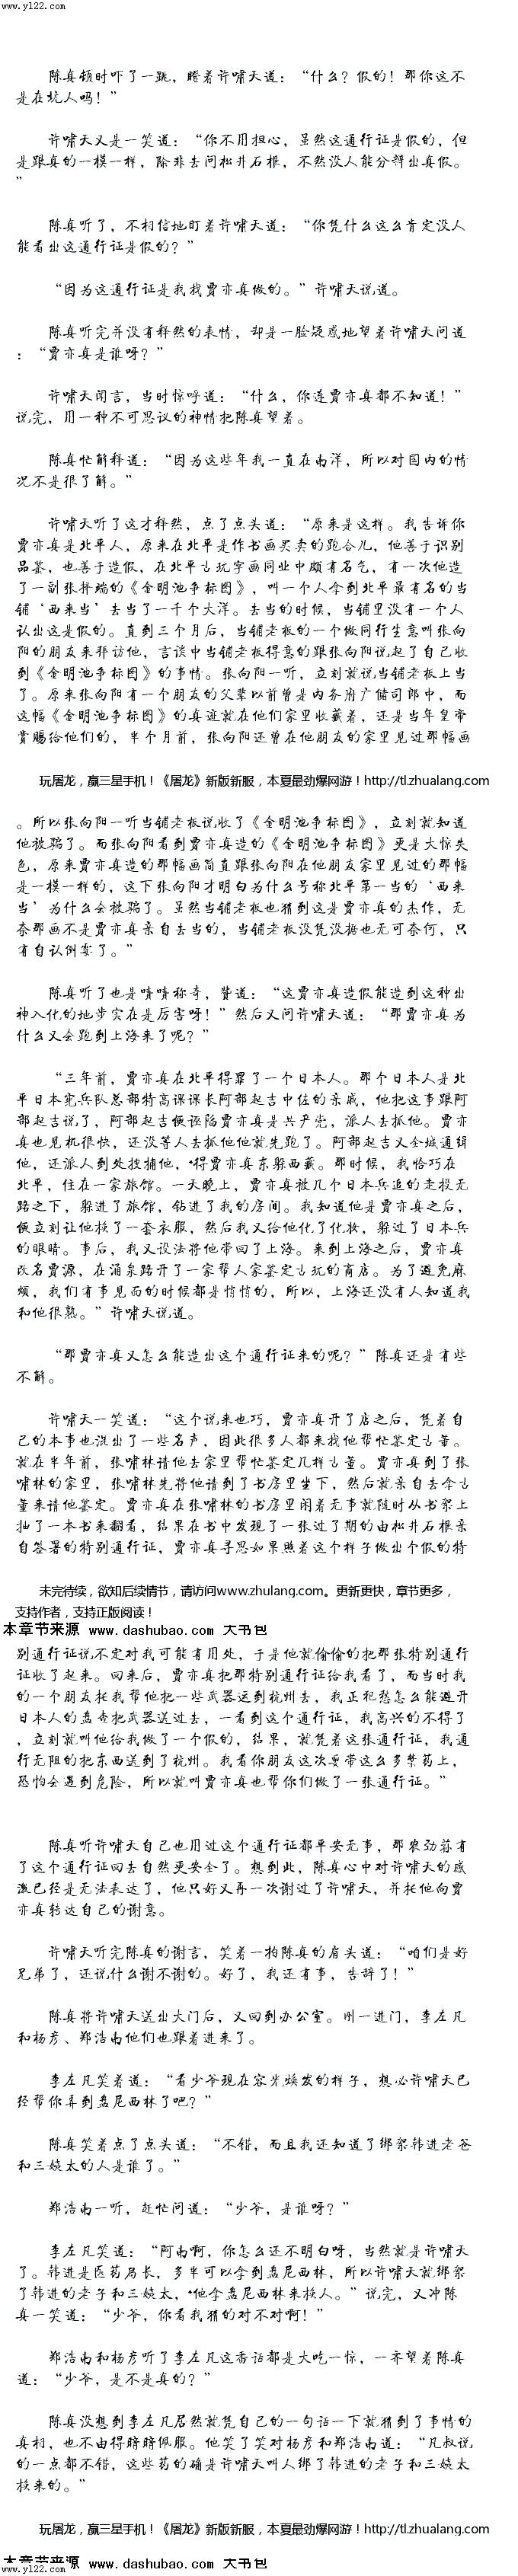 www.yl22.com
陈真顿时吓了一跳，瞪着许啸天道：“什么？假的！那你这不
是在坑人吗！”
许啸天又是一笑道：“你不用担心，虽然这通行证是假的，但
是跟真的一模一样，除非去问松井石根，不然没人能分辨出真假。
”
陈真听了，不相信地盯着许啸天道：“你凭什么这么肯定没人
能看出这通行证是假的？”
“因为这通行证是我找贾亦真做的。”许啸天说道。
陈真听完并没有释然的表情，却是一脸疑惑地望着许啸天问道
：“贾亦真是谁呀？”
许啸天闻言，当时惊呼道：“什么，你连贾亦真都不知道！”
说完，用一种不可思议的神情把陈真望着。
陈真忙解释道：“因为这些年我一直在南洋，所以对国内的情
况不是很了解。”
许啸天听了这才释然，点了点头道：“原来是这样。我告诉你
贾亦真是北平人，原来在北平是作书画买卖的跑合儿，他善于识别
品鉴，也善于造假，在北平古玩字画同业中颇有名气，有一次他造
了一副张择端的《金明池争标图》，叫一个人拿到北平最有名的当
铺‘西来当’去当了一千个大洋。去当的时候，当铺里没有一个人
认出这是假的。直到三个月后，当铺老板的一个做同行生意叫张向
阳的朋友来拜访他，言谈中当铺老板得意的跟张向阳说起了自己收
到《金明池争标图》的事情。张向阳一听，立刻就说当铺老板上当
了。原来张向阳有一个朋友的父辈以前曾是内务府广储司郎中，而
这幅《金明池争标图》的真迹就在他们家里收藏着，还是当年皇帝
赏赐给他们的，半个月前，张向阳还曾在他朋友的家里见过那幅画
玩屠龙，赢三星手机！《屠龙》新版新服，本夏最劲爆网游！http://tl.zhualang.com
。所以张向阳一听当铺老板说收了《金明池争标图》，立刻就知道
他被骗了。而张向阳看到贾亦真造的《金明池争标图》更是大惊失
色，原来贾亦真造的那幅画简直跟张向阳在他朋友家里见过的那幅
是一模一样的，这下张向阳才明白为什么号称北平第一当的‘西来
当’为什么会被骗了。虽然当铺老板也猜到这是贾亦真的杰作，无
奈那画不是贾亦真亲自去当的，当铺老板没凭没据也无可奈何，只
有自认倒霉了。”
陈真听了也是啧啧称奇，赞道：“这贾亦真造假能造到这种出
神入化的地步实在是厉害呀！”然后又问许啸天道：“那贾亦真为
什么又会跑到上海来了呢？”
“三年前，贾亦真在北平得罪了一个日本人。那个日本人是北
平日本宪兵队总部特高课课长阿部起吉中佐的亲戚，他把这事跟阿
部起吉说了，阿部起吉便诬陷贾亦真是共产党，派人去抓他。贾亦
真也见机很快，还没等人去抓他他就先跑了。阿部起吉又全城通缉
他，还派人到处搜捕他，*得贾亦真东躲西藏。那时候，我恰巧在
北平，住在一家旅馆。一天晚上，贾亦真被几个日本兵追的走投无
路之下，躲进了旅馆，钻进了我的房间。我知道他是贾亦真之后，
便立刻让他换了一套衣服，然后我又给他化了化妆，躲过了日本兵
的眼睛。事后，我又设法将他带回了上海。来到上海之后，贾亦真
改名贾源，在涌泉路开了一家帮人家鉴定古玩的商店。为了避免麻
烦，我们有事见面的时候都是悄悄的，所以，上海还没有人知道我
和他很熟。”许啸天说道。
“那贾亦真又怎么能造出这个通行证来的呢？”陈真还是有些
不解。
许啸天一笑道：“这个说来也巧，贾亦真开了店之后，凭着自
己的本事也混出了一些名声，因此很多人都来找他帮忙鉴定古董。
就在半年前，张啸林请他去家里帮忙鉴定几样古董。贾亦真到了张
啸林的家里，张啸林先将他请到了书房里坐下，然后就亲自去拿古
董来请他鉴定。贾亦真在张啸林的书房里闲着无事就随时从书架上
抽了一本书来翻看，结果在书中发现了一张过了期的由松井石根亲
自签署的特别通行证，贾亦真寻思如果照着这个样子做出个假的特
未完待续，欲知后续情节，请访问www.zhulang.com。更新更快，章节更多，
支持作者，支持正版阅读！
本章节来源 www.dashubao.com 大书包
别通行证说不定对我可能有用处，于是他就偷偷的把那张特别通行
证收了起来。回来后，贾亦真把那特别通行证给我看了，而当时我
的一个朋友托我帮他把一些武器运到杭州去，我正犯愁怎么能避开
日本人的盘查把武器送过去，一看到这个通行证，我高兴的不得了
，立刻就叫他给我做了一个假的，结果，就凭着这张通行证，我通
行无阻的把东西送到了杭州。我看你朋友这次要带这么多禁药上，
恐怕会遇到危险，所以就叫贾亦真也帮你们做了一张通行证。”
陈真听许啸天自己也用过这个通行证都平安无事，那农劲荪有
了这个通行证回去自然更安全了。想到此，陈真心中对许啸天的感
激已经是无法表达了，他只好又再一次谢过了许啸天，并托他向贾
亦真转达自己的谢意。
许啸天听完陈真的谢言，笑着一拍陈真的肩头道：“咱们是好
兄弟了，还说什么谢不谢的。好了，我还有事，告辞了！”
陈真将许啸天送出大门后，又回到办公室。刚一进门，李左凡
和杨彦、郑浩南他们也跟着进来了。
李左凡笑着道：“看少爷现在容光焕发的样子，想必许啸天已
经帮你弄到盘尼西林了吧？”
陈真笑着点了点头道：“不错，而且我还知道了绑架韩进老爸
和三姨太的人是谁了。”
郑浩南一听，赶忙问道：“少爷，是谁呀？”
李左凡笑道：“阿南啊，你怎么还不明白呀，当然就是许啸天
了。韩进是医药局长，多半可以拿到盘尼西林，所以许啸天就绑架
了韩进的老子和三姨太，*他拿盘尼西林来换人。”说完，又冲陈
真一笑道：“少爷，你看我猜的对不对啊！”
郑浩南和杨彦听了李左凡这番话都是大吃一惊，一齐望着陈真
道：“少爷，是不是真的？”
陈真没想到李左凡居然就凭自己的一句话一下就猜到了事情的
真相，也不由得暗暗佩服。他笑了笑对杨彦和郑浩南道：“凡叔说
的一点都不错，这些药的确是许啸天叫人绑了韩进的老子和三姨太
换来的。”
玩屠龙，赢三星手机！《屠龙》新版新服，本夏最劲爆网游！http://tl.zhualang.com
本章节来源 www.dashubao.com 大书包
www.yl22.com